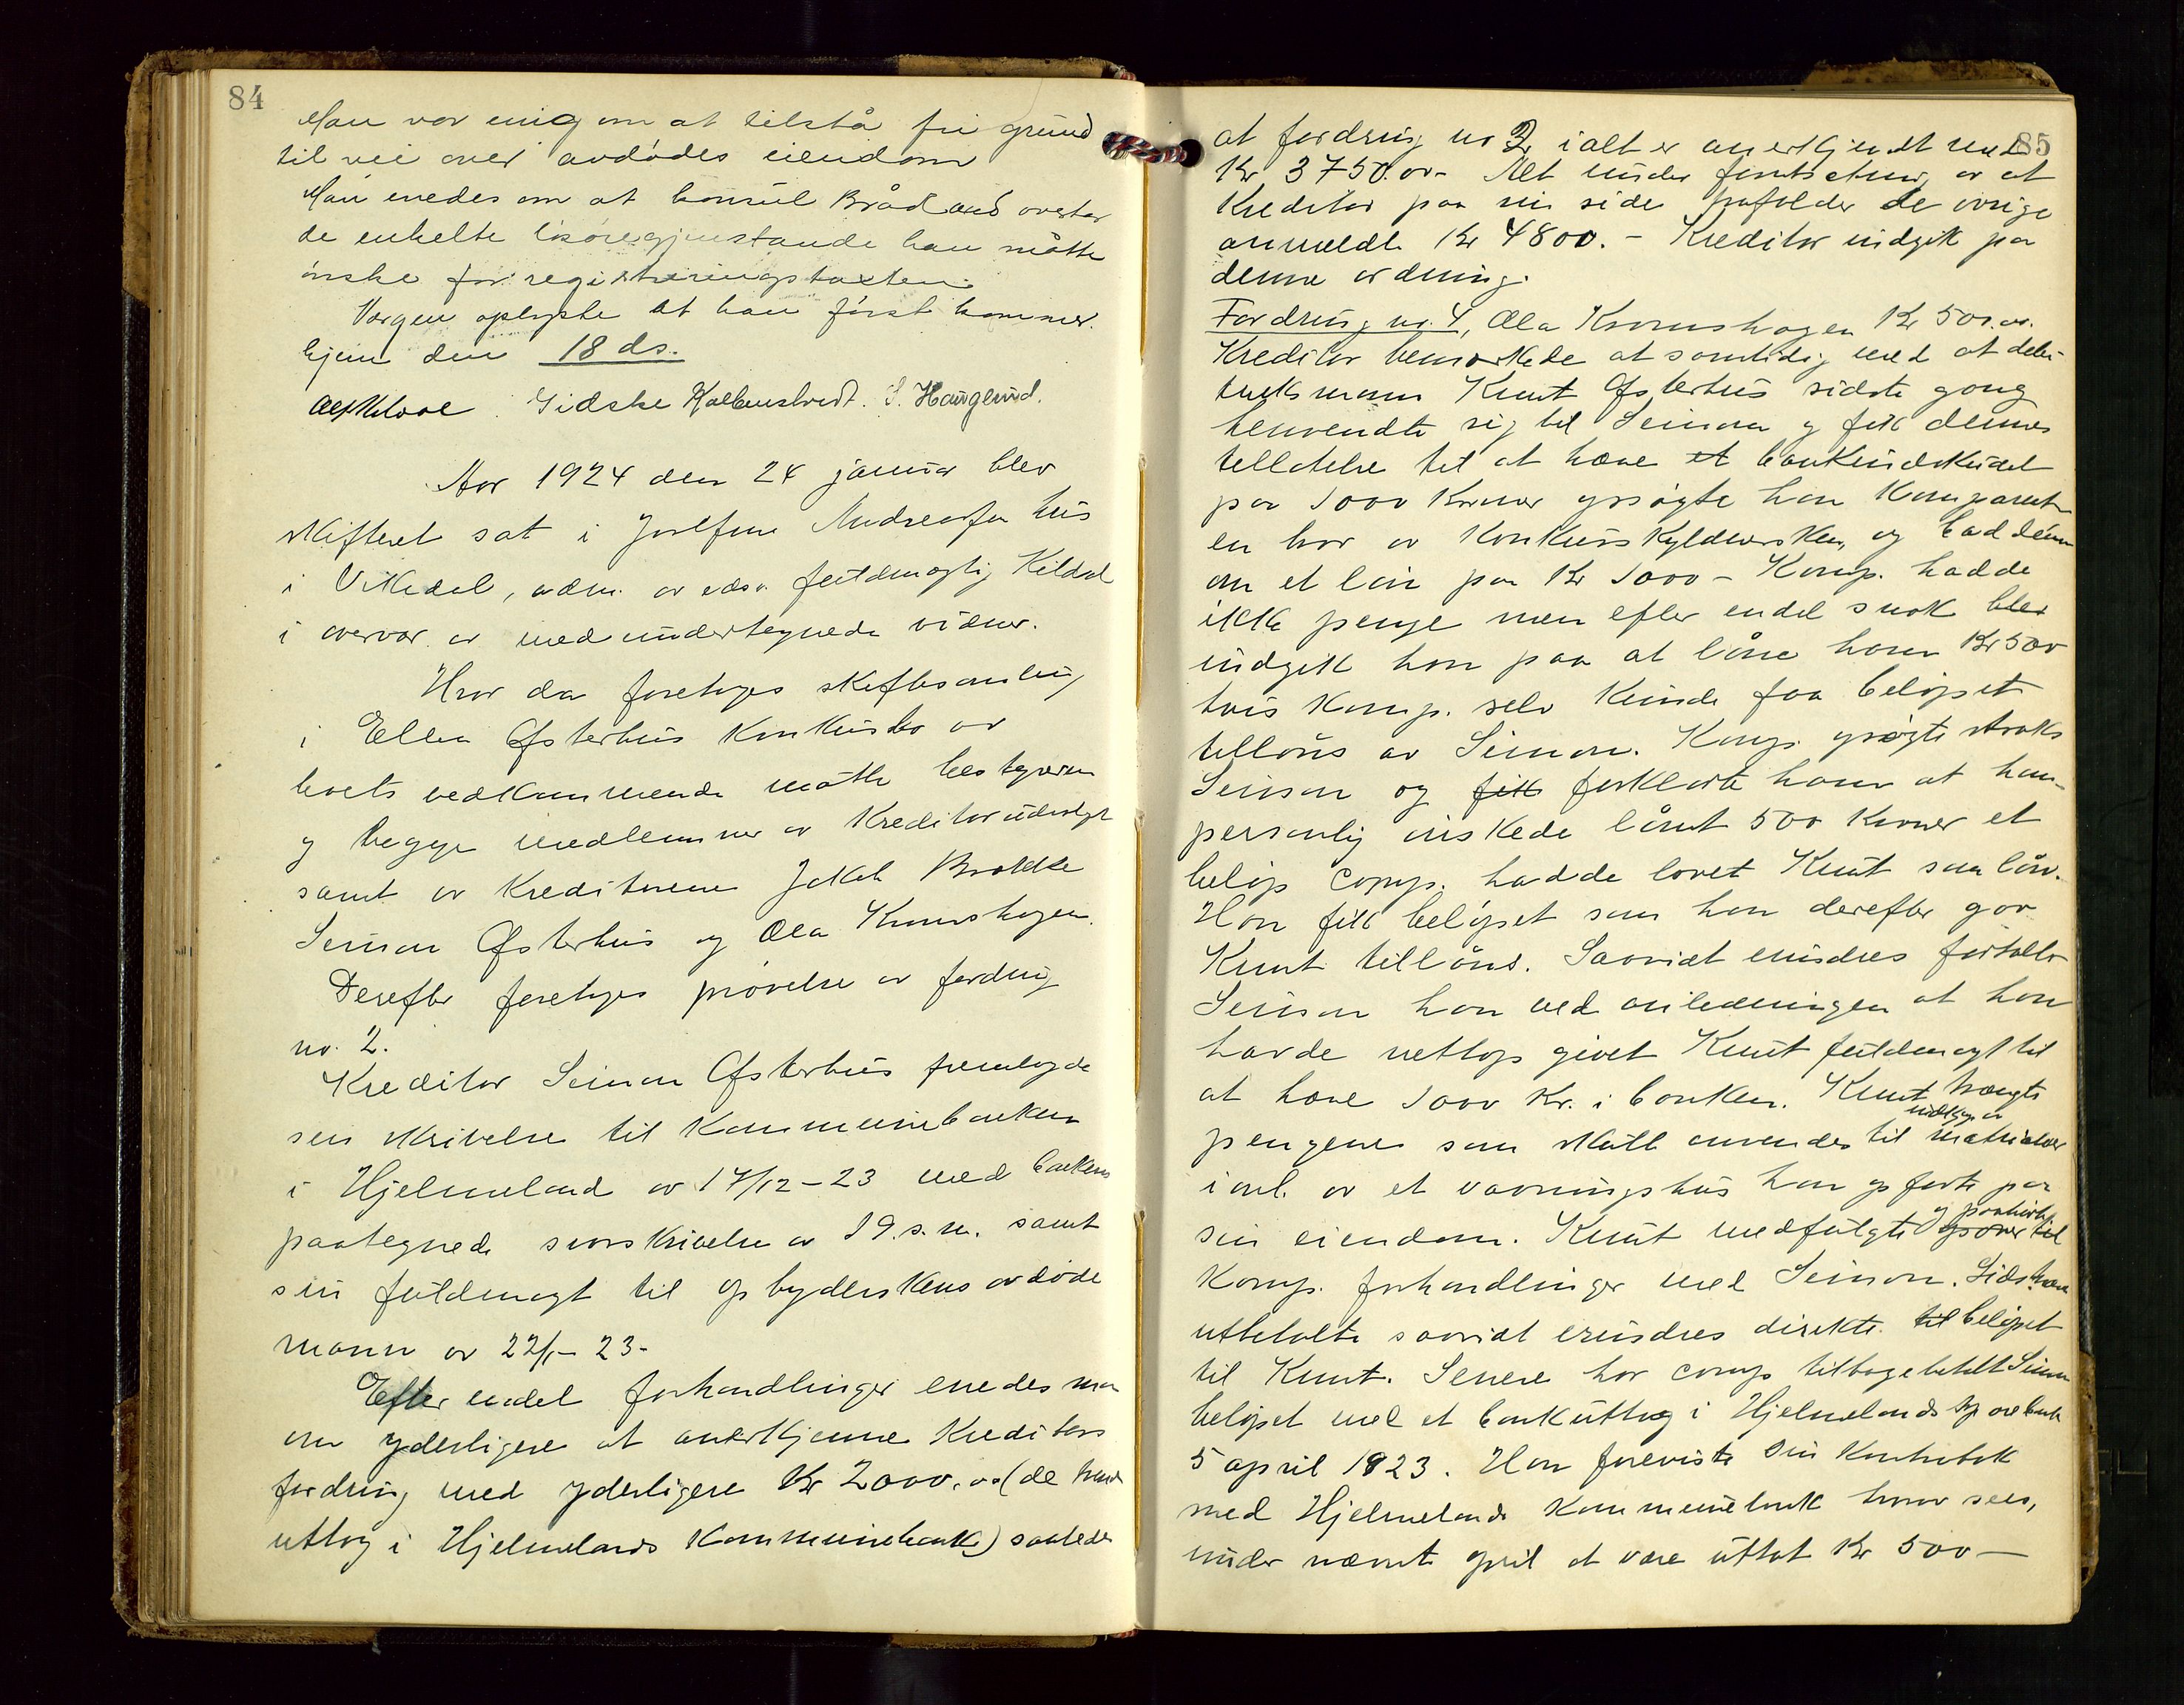 84
Man var enig om at tilstå fri grund
til vei over avdödes eiendom
Man enedes om at konsul Brådland overtar
de enkelte lösöregjenstande han måtte
önske for registreringstaxten.
Vergen oplyste at han först kommer
hjem den 18 ds.
Alf Kildal. Sidske Kolbenstvedt. S. Haugerud.
Aar 1924 den 24 januar blev
skifteret sat i Josefine Andreasens hus
i Vikedal, adm. av eds. fuldmægtig Kildal
i overvær av medundertegnede vidner.
Hvor da foretoges skiftesamling
i Ellen Østerhus konkursbo av
boets vedkommende mötte bestyreren
og begge medlemmer av kreditorudvalget
samt av kreditorerne Jakob Brekke
Seimon Østerhus og Ola Kromshagen.
Derefter foretoges prövelse av fordring
no. 2.
Kreditor Seimon Østerhus fremlagde
sin skrivelse til Kommunebanken
i Hjelmeland av 17/12-23 med bankens
paategnede svarskrivelse av 19. s.m. samt
sin fuldmagt til opbyderskens avdöde
mann av 22/1-23-
Efter endel forhandlinger enedes man
om yderligere at anerkjenne kreditors
fordring med yderligere Kr 2000.00 (de
uttog i Hjelmelands Kommunebank) saaledes
85
at fordring no 2 ialt er anerkjendt med
Kr 3750.00- Alt under forutsetning av at
Kreditor paa sin side frafalder de övrige
anmeldte Kr 4800.- Kreditor indgik paa
denne ordning.
Fordring no. 4, Ola Kromshagen Kr 500.00.
Kreditor bemerkede at samtidig med at debi-
tucks mann Knut Østerhus sidste gang
henvendte sig til Seimon og fik dennes
tillatelse til at hæve et bankindskudd
paa 1000 kroner opsögte han komparenten
en bror av konkursskyldnersken, og bad denne
om et lån paa Kr 1000- Komp. hadde
ikke penge men efter endel snak blev
indgik han paa at låne ham Kr 500
hvis komp. selv kunde faa belöpet
tillåns av Seimon. Komp. opsögte straks
Seimon og fik forklarte ham at han
personlig önskede lånt 500 kroner et
belöp comp. hadde lovet Knut som lån.
Han fik belöpet som han derefter gav
Knut tillåns. Saavidt erindres fortalte
Seimon ham ved anledningen at han
havde nettop givet Knut fuldmagt til
at hæve 1000 kr. i banken. Knut trængte
pengene som skulle anvendes til indkjöp av matrialer
i anl. av et vaaningshus han opförte paa
sin eiendom. Knut medfulgte og paahörte opover til
Komp. forhandlinger med Seimon.
utbetalte saavidt erindres direkte til belöpet
til Knut. Senere har comp tilbagebetalt Seimon
belöpet med et bankuttog i Hjelmelands Sparebank
5 april 1923. Han foreviste sin kontrabok
med Hjelmelands Kommunebank hvorav sees,
under nævnte april at være uttat Kr 500-